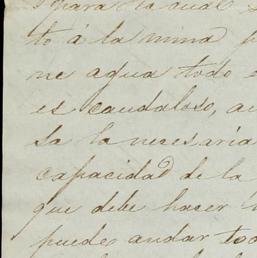 para la cual
to á la mina
ne agua todo
es caudaloso,
sa la necesaria
capacidad de la
que debe hacer
puedes andar